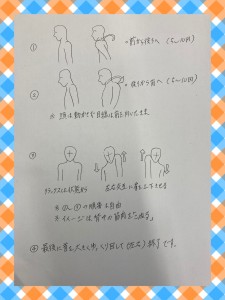 ①
→前から後ろへ (5〜10回)
②
→後ろから前へ (5〜10回)
※ 頭は動かさず目線は前に向けたまま
③
リラックスした状態から
左右交互に肩を上下させる
※ ①、②の順番は自由
※ イメージは背中の筋肉を
④ 最後に肩を大きく